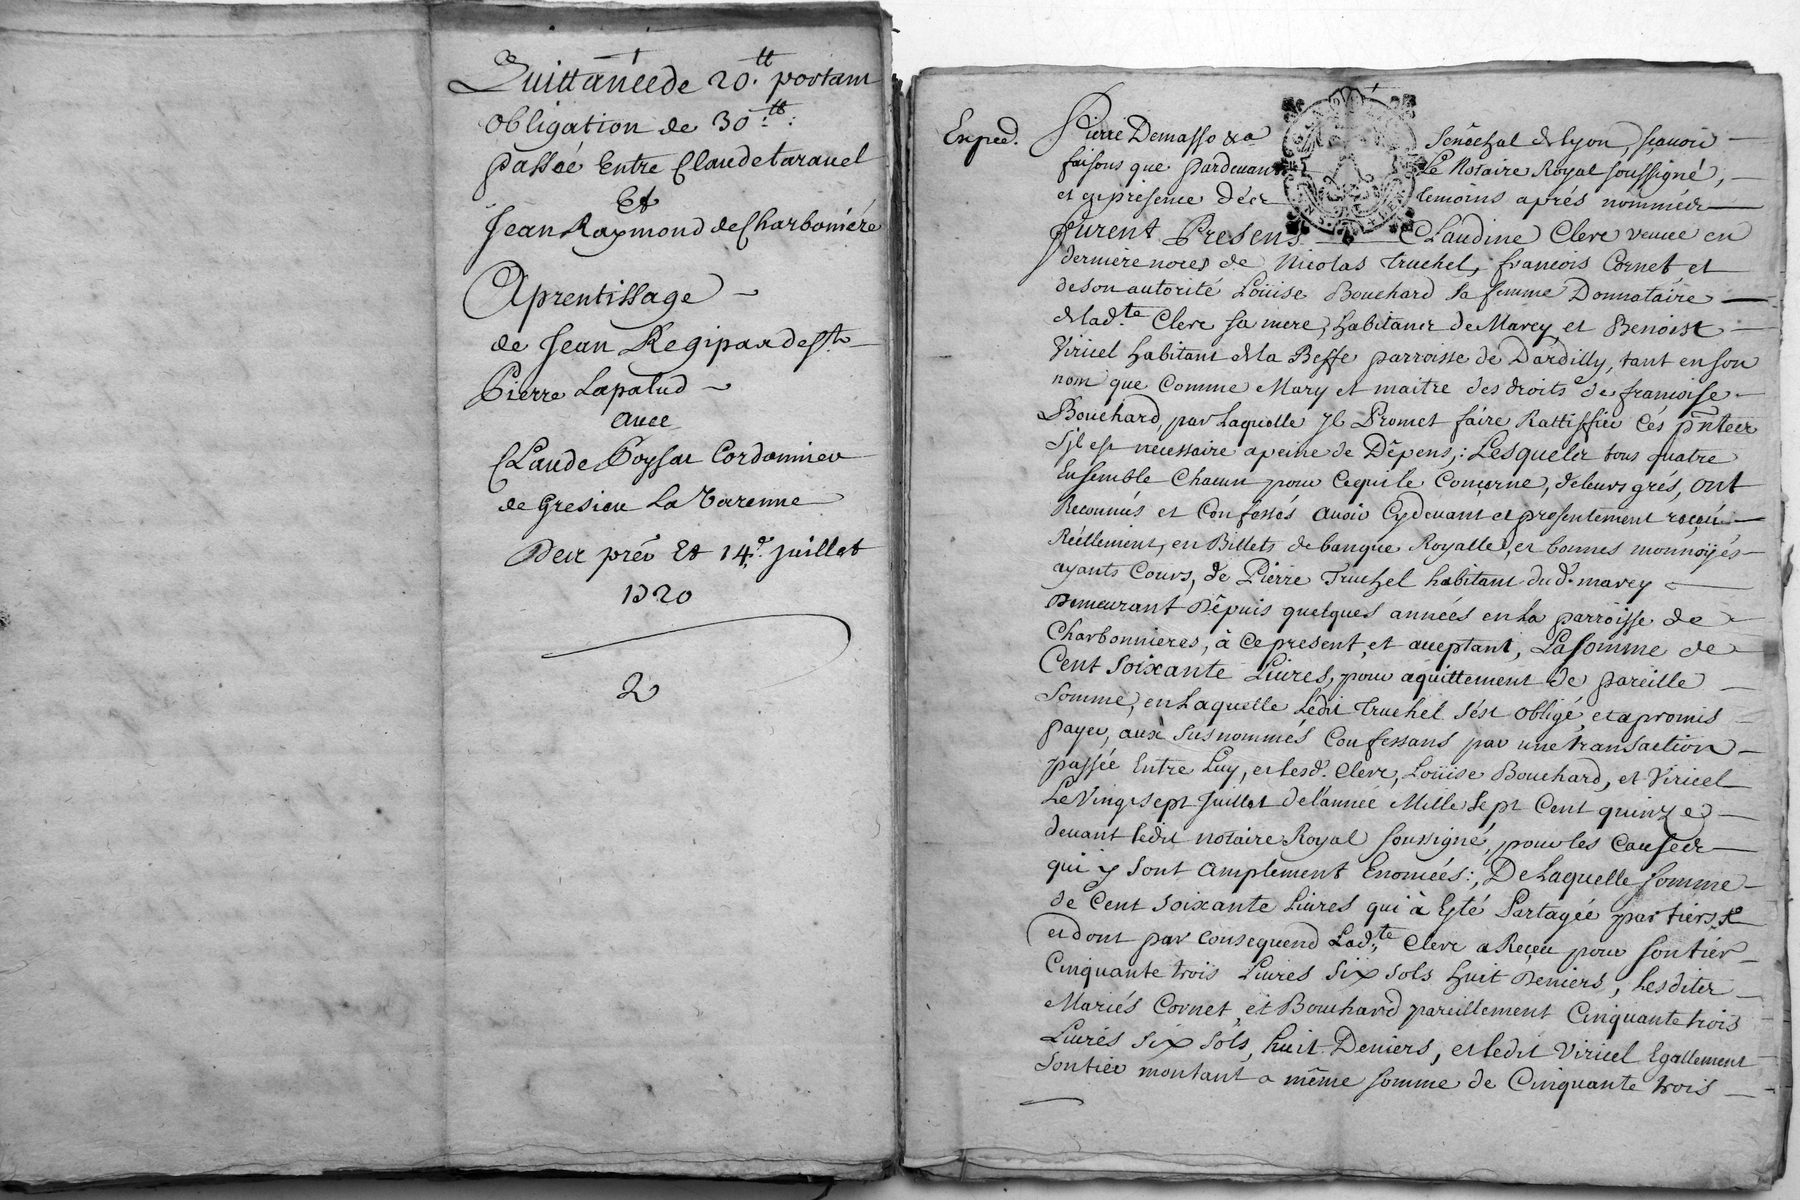 Quittancede 20.tt portant
obligation de 30.tt:
passée Entre Claudetaravel
Et
Jean Raymond de Charboniére
Aprentissage
de Jean Regipas de St
Pierre Lapalud
avec
Claude Poysat Cordonnier
de Gresieu La Varenne
Des prér Et 14e. Juillet
1720
2
Exped. Pierre Demasso &a Senéchal de lyon, scavoir
faisons que pardevant Le Notaire Royal soussigné,
et enpresence dés temoins aprés nommés
furent Presens Claudine Clerc veuve en
derniere noces de Nicolas Truchel, francois Cornet et
deson autorité Loüise Bouchard sa femme Donnataire
de lad.te Clerc sa mere, habitans de Marcy et Benoist
Viricel habitant de la Beffe parroisse de Dardilly, tant en son
nom que Comme Mary et maitre des droits de francoise
Bouchard, par Laquelle Jl Promet faire Rattiffier Cés pñtes
s'jl est necessaire apeine de Dépens,: Lesquels tous quatre
Ensemble Chacun pour Cequi le Concerne, de leurs grés, ont
Reconnus et Confessés avoir Cydevant et presentement reçeu
Réellement, en Billets de banque Royalle, et bonnes monnoyés
ayants Cours, de Pierre Truchel habitant dud. marcy
Demeurant Dépuis quelques années en la parroisse de
Charbonnieres, à ce present, et acceptant, La somme de
Cent soixante Livres, pour aquittement de pareille
somme, en Laquelle Ledit Truchel s'est obligé, et a promis
payer, aux susnommés Confessans par une transaction
passée Entre Luy, et lesd. Clerc, Loüise Bouchard, et Viricel
Le Vingt sept Juillet de l'année Mille sept Cent quinze
devant ledit notaire Royal soussigné, pour les Causes
qui y sont amplement Enoncées:, De Laquelle somme
de Cent soixante Livres qui à Esté Partagée par tiers
et dont par consequend Lad.te Clerc a Reçeu pour son tier
Cinquante trois Livres six sols huit Deniers, Lesdites
Mariés Cornet, et Bouchard pareillement Cinquante trois
Livrés six sols, huit Deniers, et ledit Viricel Egallement
son tier montant a même somme de Cinquante trois